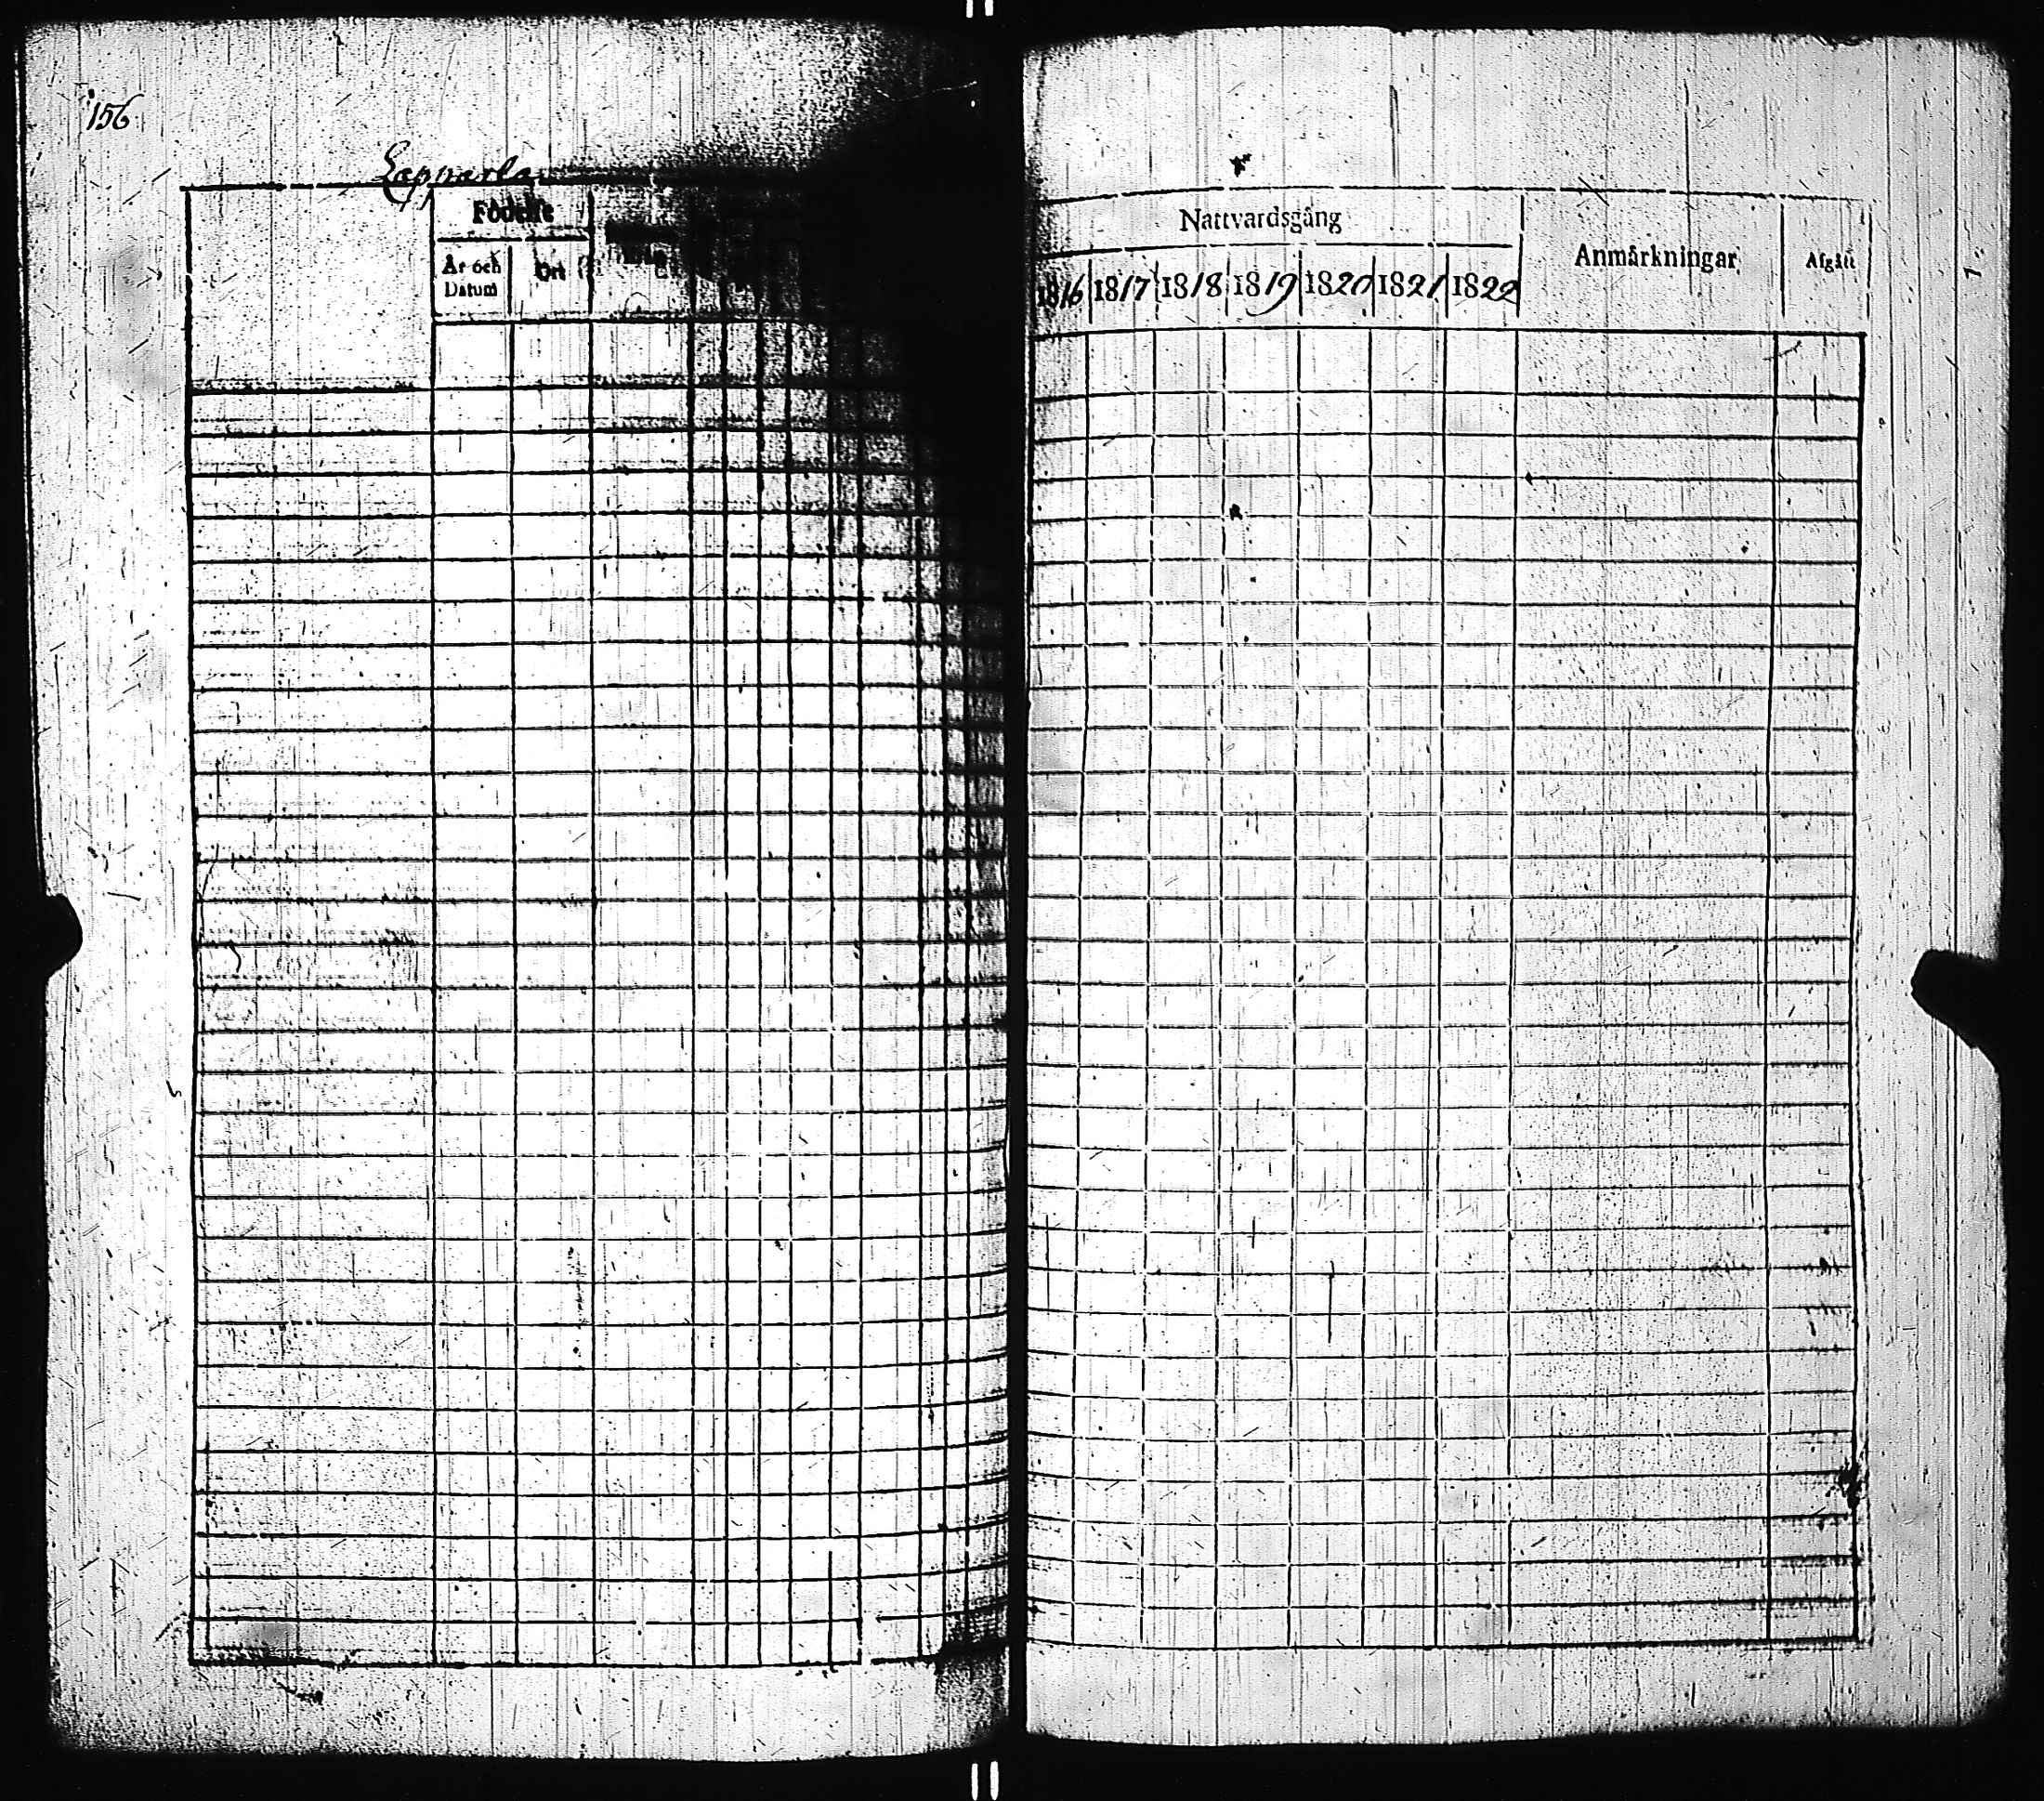 156
Lapparla
Födelse
År och Datum
Ort
Nattvardsgång
Anmärkningar
Afgått
1816 1817 1818 1819 1820 1821 1822